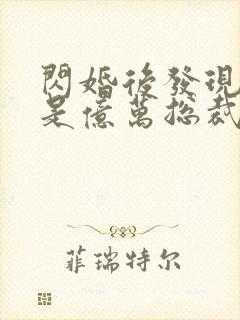 閃婚後發現
是億萬總裁
菲瑞特尔